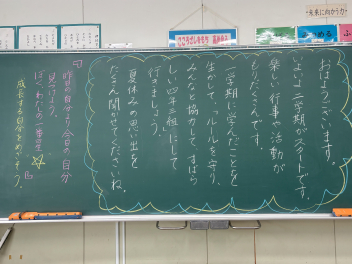 おはようございます。
いよいよ二学期がスタートです。
楽しい行事や活動が
もりだくさんです。
一学期に学んだことを
生かして、ルールを守り、
みんなと協力して、すばら
しい四年一組にして
行きましょう。
夏休みの思い出を
たくさん聞かせてくださいね。
昨日の自分より今日の自分
見つけよう。
ぼく、わたしの一番星
成長する自分をめざそう。
未来に向かう力